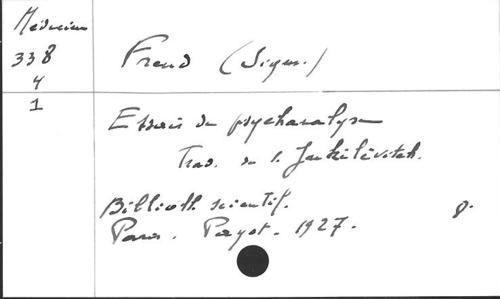 Médecine
338
4
1
Freud (Sigm.)
Essais de psychanalyse
Trad. de S. Jankélévitch.
Biblioth. scientif.
Paris. Payot. 1927. 8°